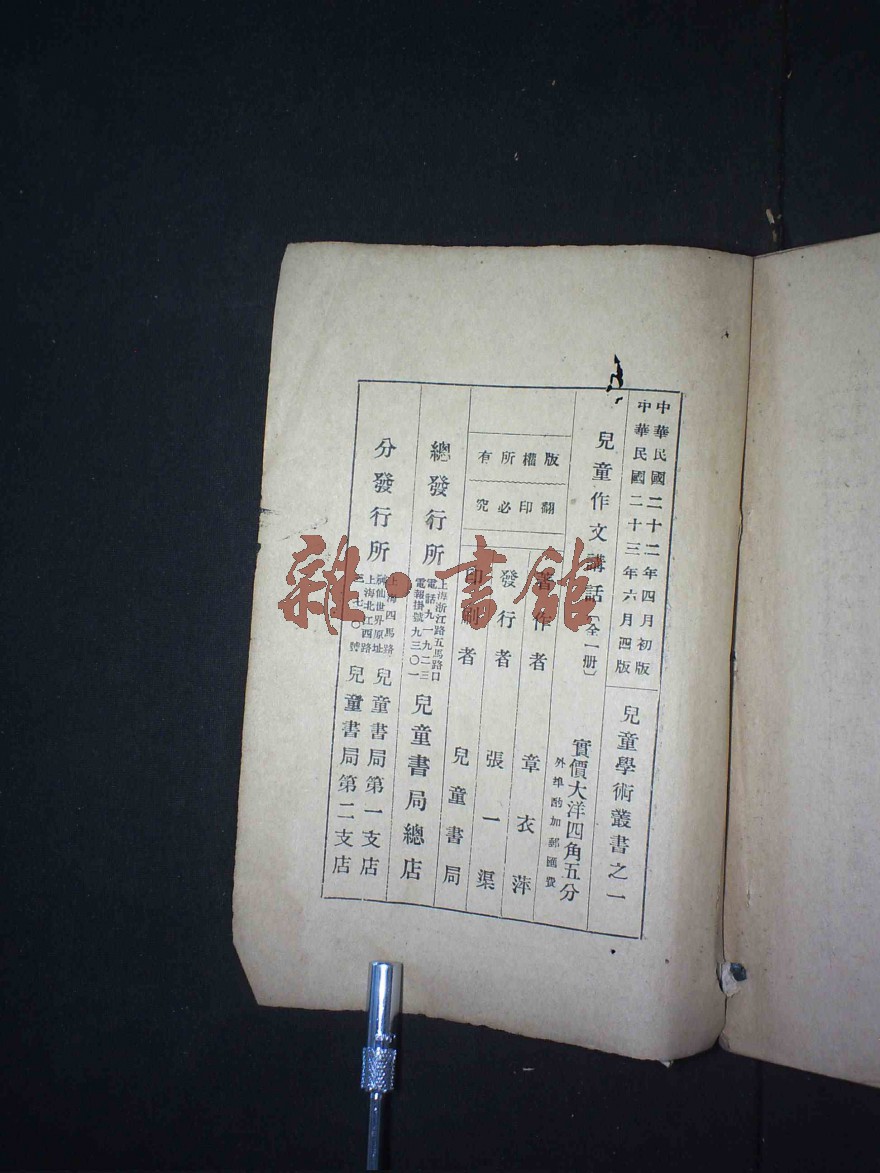 中華民國二十二年四月初版
中華民國二十三年六月四版
兒童學術叢書之一
兒童作文講話（全一册）
實價大洋四角五分
外埠酌加郵匯費
版權所有
翻印必究
著作者 章衣萍
發行者 張一渠
印刷者 兒童書局
總發行所
上海浙江路五馬路口
電話九一九二三
電報掛號九三〇一
兒童書局總店
分發行所
上海四馬路
神仙世界原址
兒童書局第一支店
上海北江西路
三七〇號
兒童書局第二支店
雜·書館